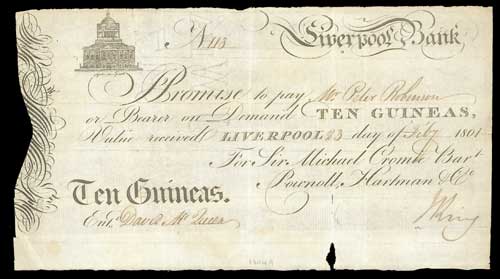 Liverpool Bank
No 113
I Promise to pay Mr Peter Robinson
or Bearer on Demand TEN GUINEAS,
Value received LIVERPOOL 23 day of Feby 1801
For Sir Michael Cromie Bart
Pownoll, Hartman & Co
Ten Guineas.
Entd. David McQueen
J King